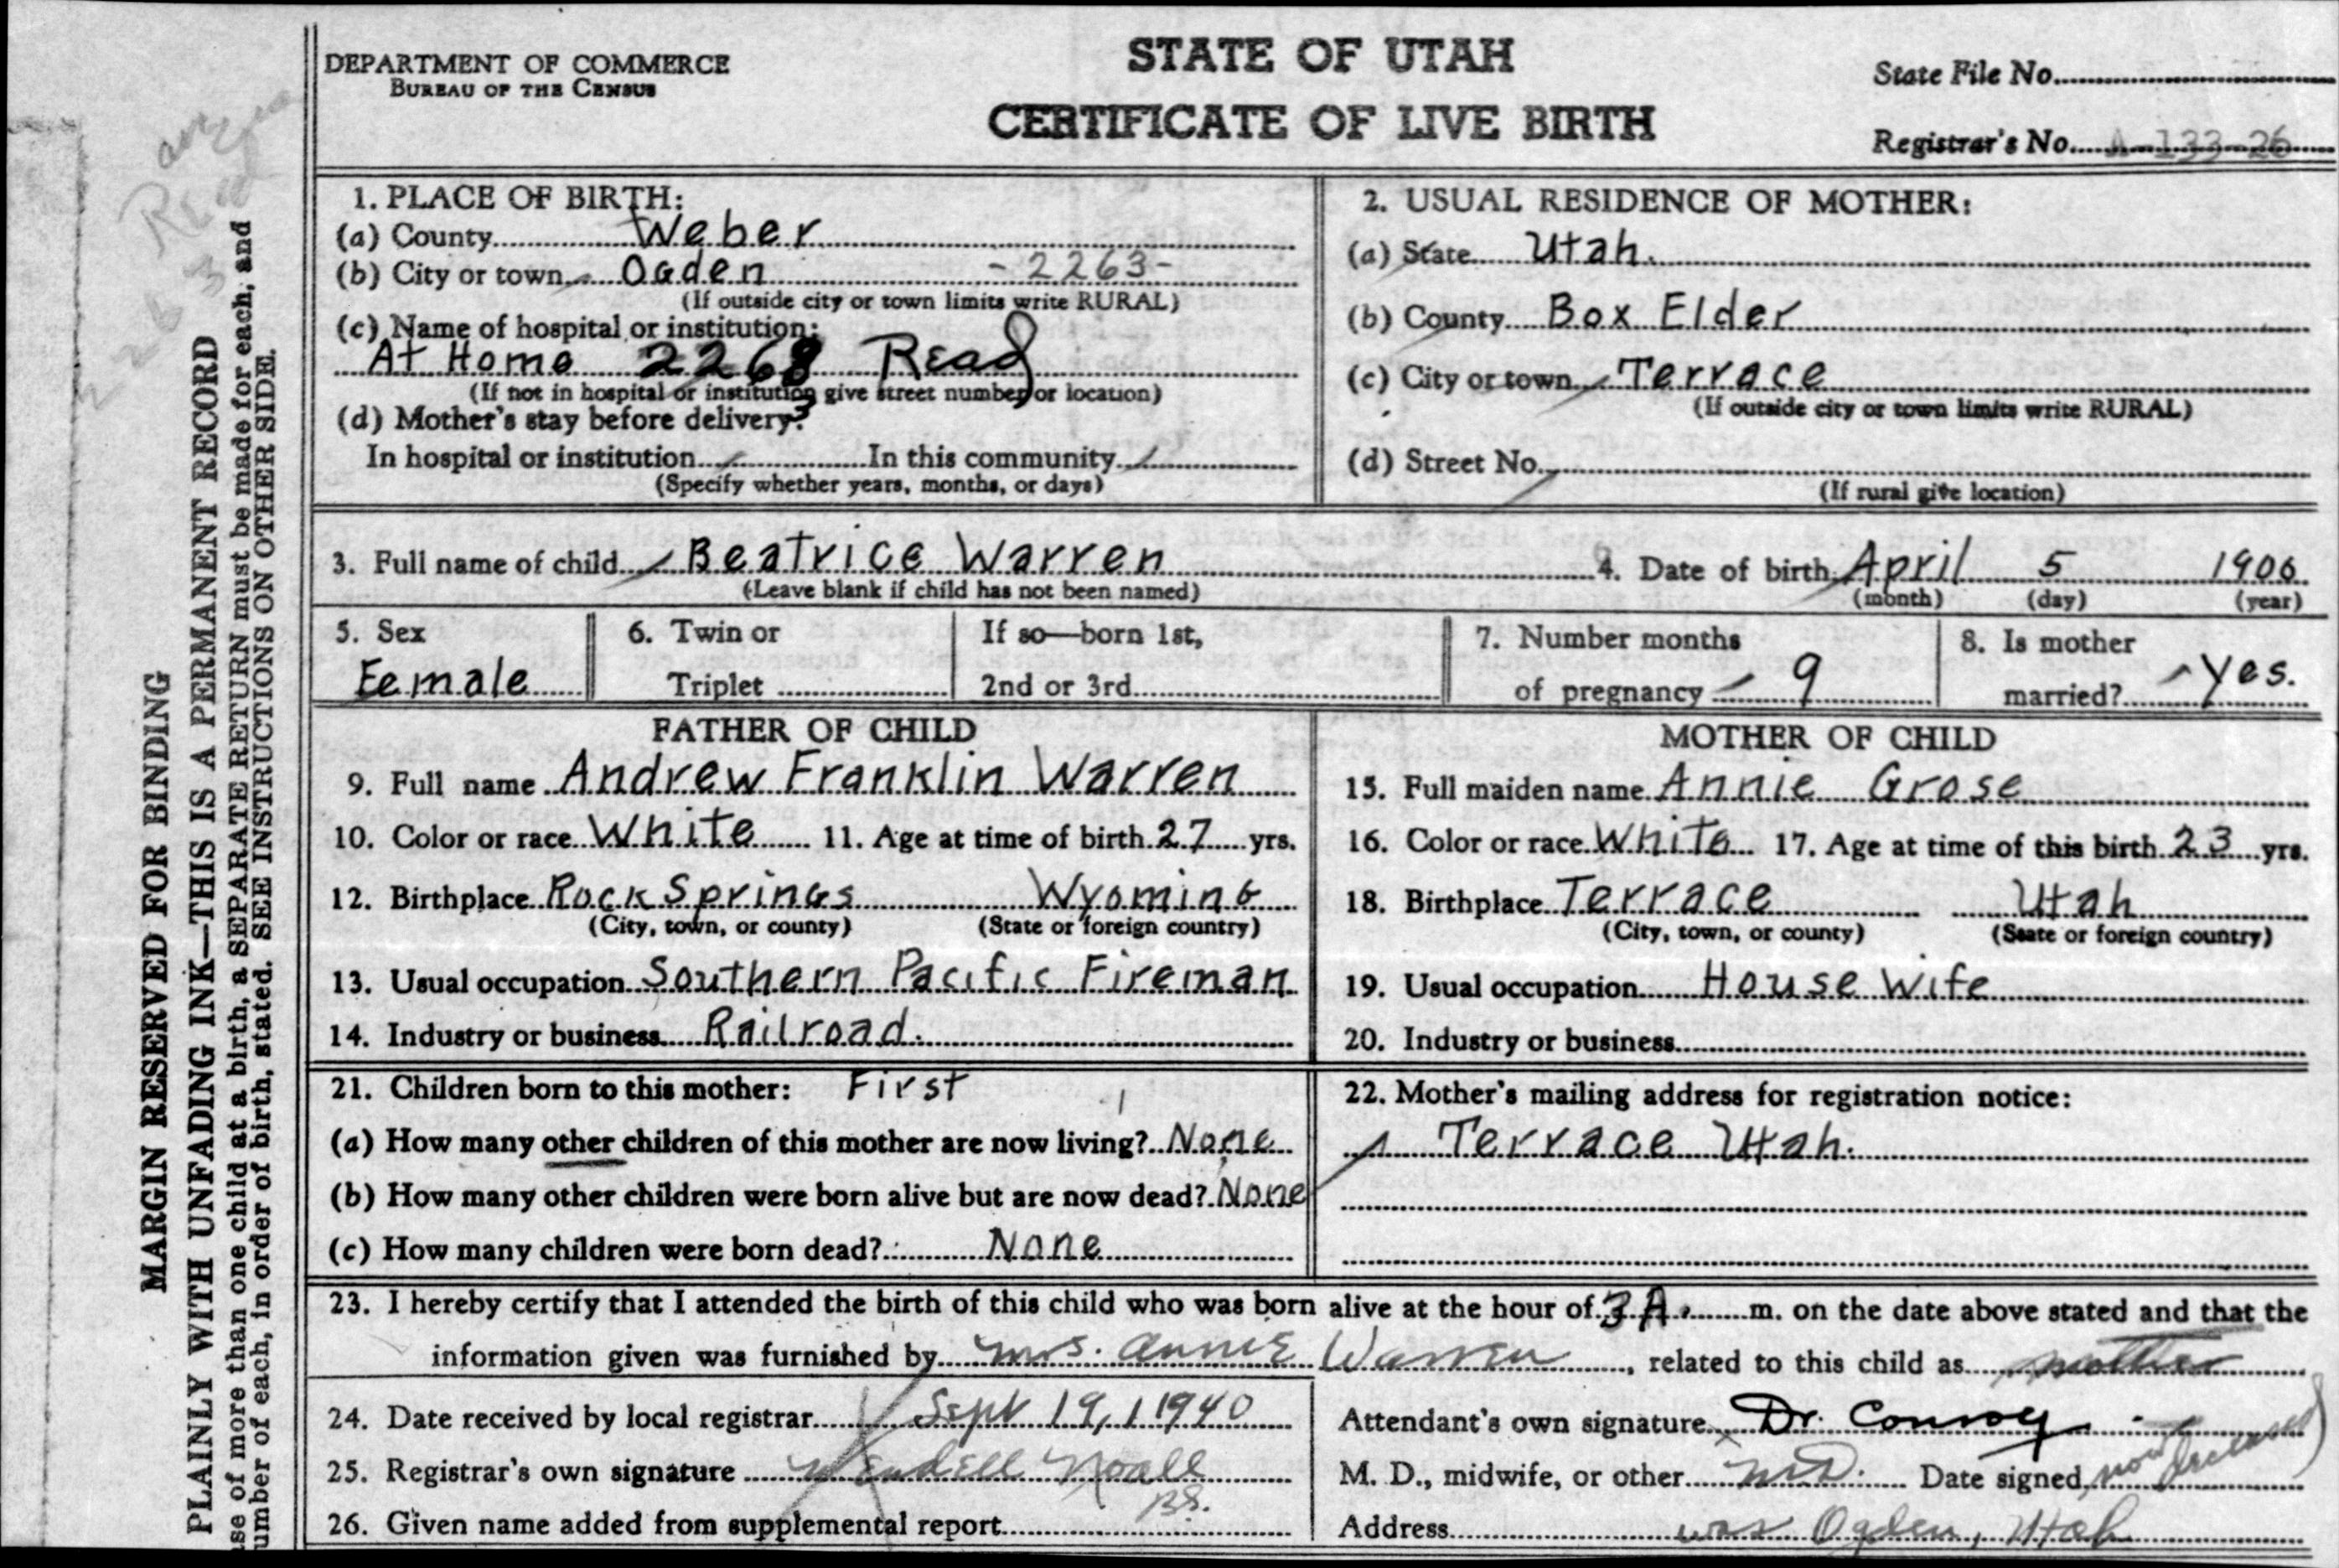 DEPARTMENT OF COMMERCE
BUREAU OF THE CENSUS
STATE OF UTAH
CERTIFICATE OF LIVE BIRTH
State File No.
Registrar's No. A-133-26
MARGIN RESERVED FOR BINDING
PLAINLY WITH UNFADING INK—THIS IS A PERMANENT RECORD
se of more than one child at a birth, a SEPARATE RETURN must be made for each, and
umber of each, in order of birth, stated. SEE INSTRUCTIONS ON OTHER SIDE.
Read
2263
1. PLACE OF BIRTH:
(a) County Weber
(b) City or town Ogden -2263-
(If outside city or town limits write RURAL)
(c) Name of hospital or institution:
At Home 2268 Read
(If not in hospital or institution give street number or location)
3
(d) Mother's stay before delivery:
In hospital or institution In this community
(Specify whether years, months, or days)
2. USUAL RESIDENCE OF MOTHER:
(a) State Utah.
(b) County Box Elder
(c) City or town Terrace
(If outside city or town limits write RURAL)
(d) Street No.
(If rural give location)
3. Full name of child Beatrice Warren
(Leave blank if child has not been named)
4. Date of birth April 5 1906
(month) (day) (year)
5. Sex
Female
6. Twin or
Triplet
If so—born 1st,
2nd or 3rd
7. Number months
of pregnancy 9
8. Is mother
married? Yes.
FATHER OF CHILD
9. Full name Andrew Franklin Warren
10. Color or race White 11. Age at time of birth 27 yrs.
12. Birthplace Rock Springs Wyoming
(City, town, or county) (State or foreign country)
13. Usual occupation Southern Pacific Fireman
14. Industry or business Railroad.
MOTHER OF CHILD
15. Full maiden name Annie Grose
16. Color or race White 17. Age at time of this birth 23 yrs.
18. Birthplace Terrace Utah
(City, town, or county) (State or foreign country)
19. Usual occupation House Wife
20. Industry or business
21. Children born to this mother: First
(a) How many other children of this mother are now living? None
(b) How many other children were born alive but are now dead? None
(c) How many children were born dead? None
22. Mother's mailing address for registration notice:
Terrace Utah.
23. I hereby certify that I attended the birth of this child who was born alive at the hour of 3 A. m. on the date above stated and that the
information given was furnished by Mrs. Annie Warren, related to this child as mother
24. Date received by local registrar Sept 19, 1940
25. Registrar's own signature Wendell Noall
B.S.
26. Given name added from supplemental report
Attendant's own signature Dr. Conroy
M. D., midwife, or other M.D. Date signed, now deceased)
Address was Ogden, Utah